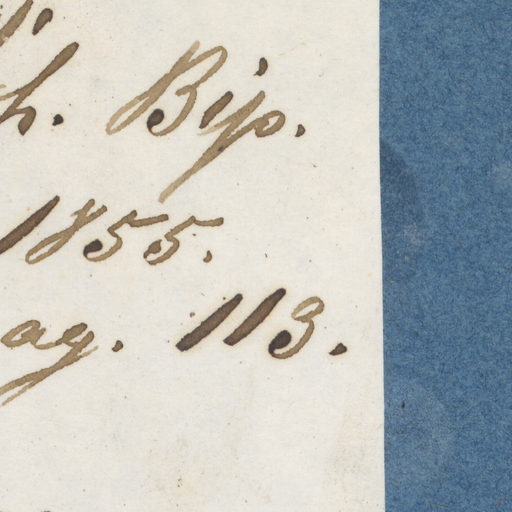 h. Bip.
1855.
ag. 113.